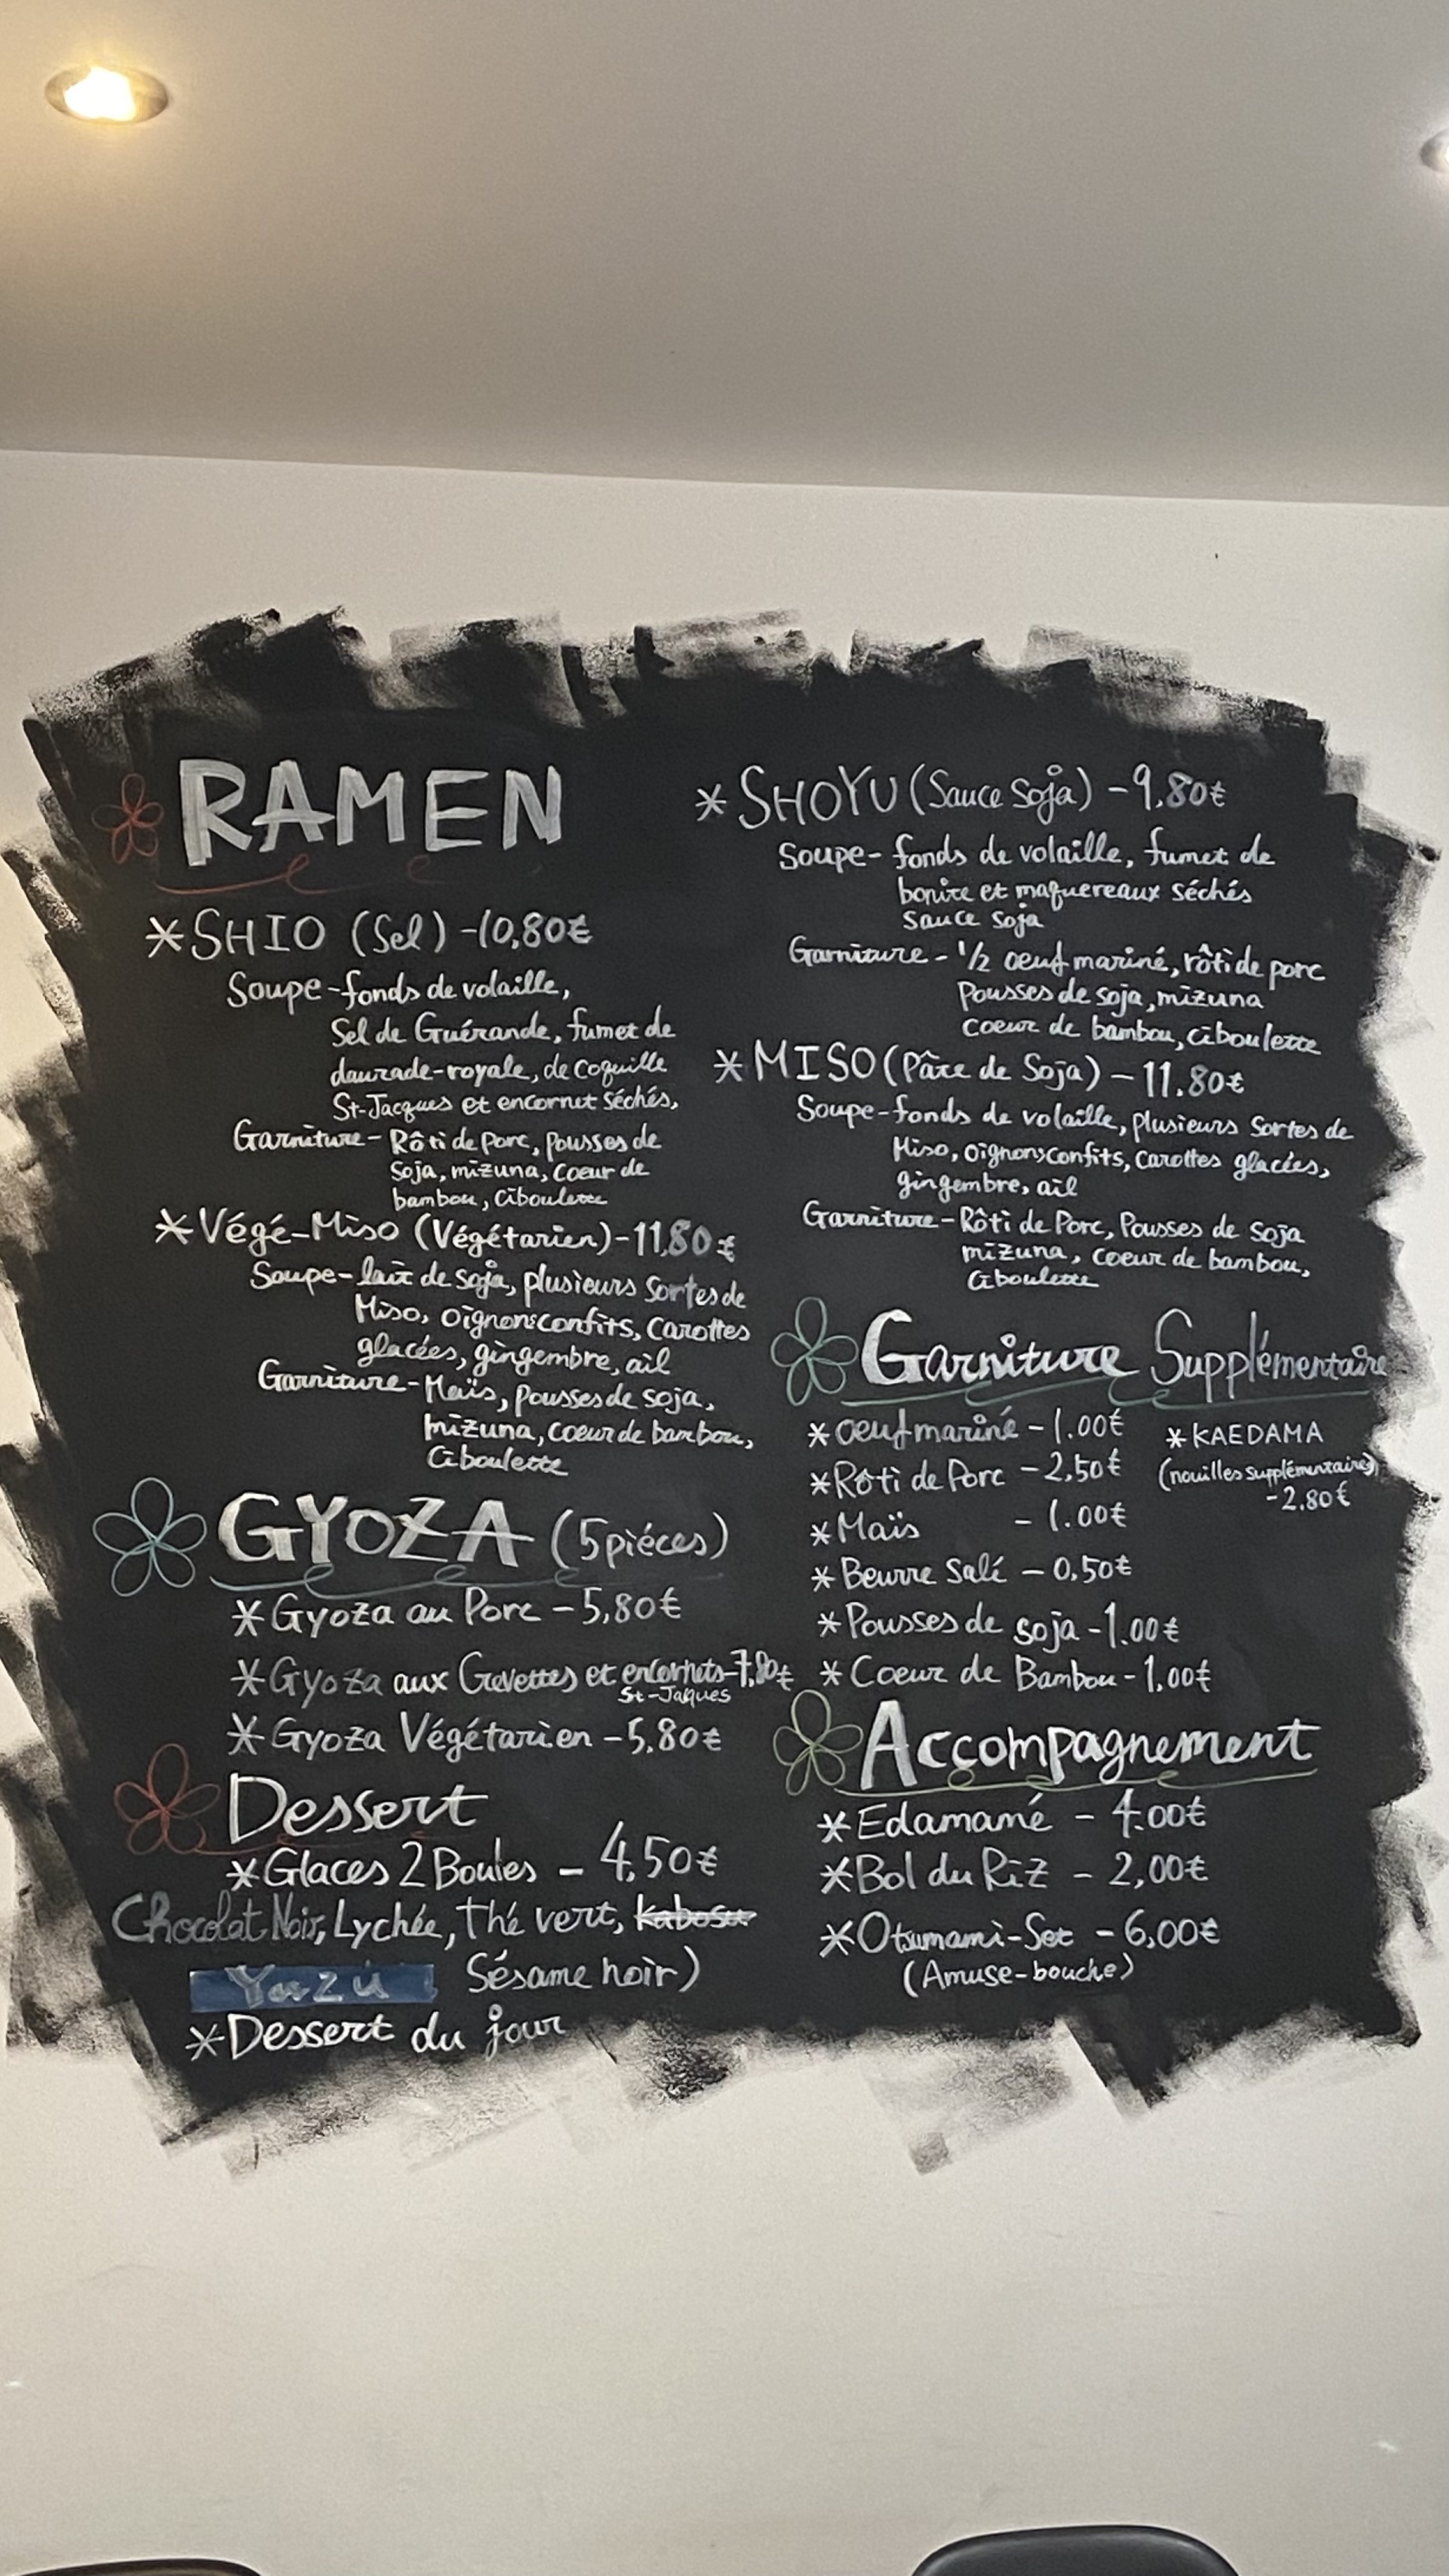 RAMEN
*SHIO (Sel) -10,80€
Soupe-fonds de volaille,
Sel de Guérande, fumet de
daurade-royale, de coquille
St-Jacques et encornet séchés,
Garniture- Rôti de Porc, pousses de
Soja, mizuna, coeur de
bambou, ciboulette
*Végé-Miso (Végétarien)-11,80€
Soupe-lait de soja, plusieurs Sortes de
Miso, oignons confits, carottes
glacées, gingembre, ail
Garniture-Maïs, pousses de soja,
mizuna, coeur de bambou,
Ciboulette
GYOZA (5 piéces)
*Gyoza au Porc -5,80€
*Gyoza aux Crevettes et encornets-7,80€
St-Jaques
*Gyoza Végétarien -5,80€
Dessert
*Glaces 2 Boules - 4,50€
Chocolat Noir, Lychée, thé vert, kabosu
Yuzu Sésame noir)
*Dessert du jour
*SHOYU (Sauce Soja) -9,80€
Soupe- fonds de volaille, fumet de
bonite et maquereaux séchés
Sauce Soja
Garniture - 1/2 oeuf mariné, rôti de porc
Pousses de soja, mizuna
coeur de bambou, ciboulette
*MISO (Pâte de Soja) - 11.80€
Soupe-fonds de volaille, plusieurs Sortes de
Miso, oignons confits, carottes glacées,
gingembre, ail
Garniture-Rôti de Porc, Pousses de Soja
mizuna, coeur de bambou,
Ciboulette
Garniture Supplémentaire
*Oeuf mariné -1.00€
*Rôti de Porc -2,50€
*Maïs - 1.00€
*Beurre Salé - 0,50€
*Pousses de soja -1.00€
*Coeur de Bambou- 1.00€
*KAEDAMA
(nouilles supplémentaires)
-2.80€
Accompagnement
*Edamamé - 4.00€
*Bol du Riz - 2,00€
*Otsumami-Set -6,00€
(Amuse-bouche)